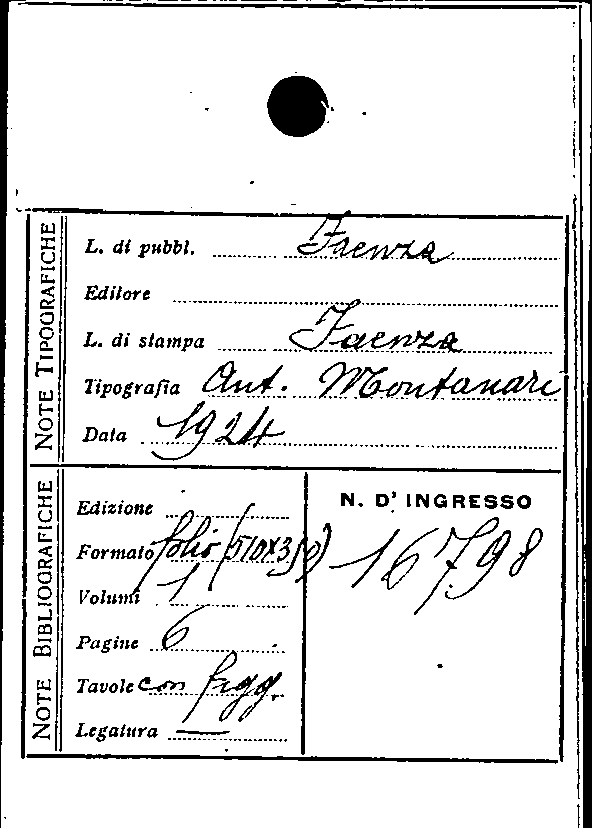 NOTE TIPOGRAFICHE
L. di pubbl. Faenza
Editore
L. di stampa Faenza
Tipografia Ant. Montanari
Data 1924
NOTE BIBLIOGRAFICHE
Edizione
Formato folio (510x350)
Volumi 1
Pagine 6
Tavole con figg.
Legatura —
N. D' INGRESSO
16798